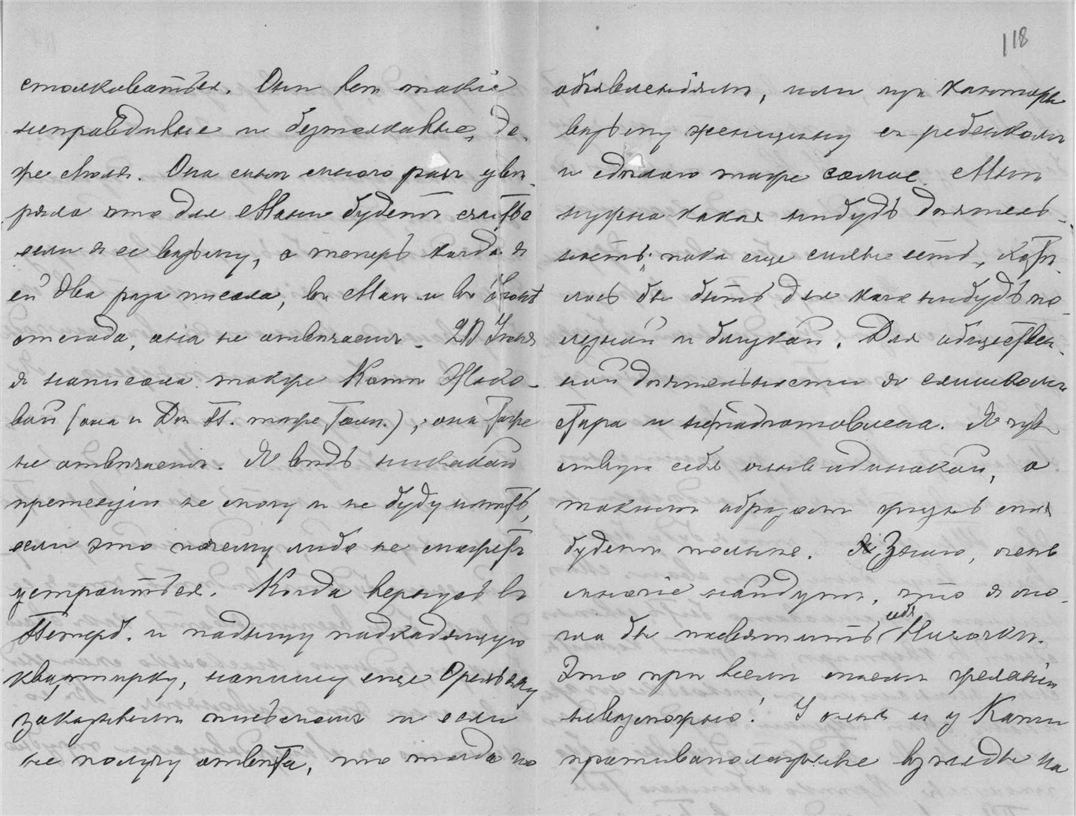 118
столковаться. Они вот такіе
несправедливые и безтолковые, да-
же люди. Она сама много разъ увѣ-
ряла что для Мани будетъ счастье
если я ее возьму, а теперь когда я
ей два раза писала, въ Маѣ и въ Іюнѣ
отсюда, она не отвѣчаетъ. 20 Іюня
я написала также Кати
вой (она и Дм. П. также тамъ.), она также
не отвѣчаетъ. Я вѣдь никакой
претензіи не могу и не буду имѣть,
если это почему либо не можетъ
устроиться. Когда вернусь въ
Петерб. и найму подходящую
квартирку, напишу еще
заказнымъ письмомъ и если
не получу отвѣта, то тогда по
объявленіямъ, или при конторѣ
возьму женщину съ ребенкомъ
и сдѣлаю тоже самое. Мнѣ
нужна какая нибудь дѣятель-
ность, пока еще силы есть, хотѣ-
лось бы быть для кого нибудь по-
лезной и близкой. Для обществен-
ной дѣятельности я слишкомъ
стара и неподготовлена. Я чув-
ствую себя очень одинокой, а
такимъ образомъ жизнь моя
будетъ полнѣе. Знаю, очень
многіе найдутъ, что я мо-
гла бы посвятить себя Ниночкѣ.
Это при всемъ моемъ желаніи
невозможно! У меня и у Кати
противоположные взгляды на